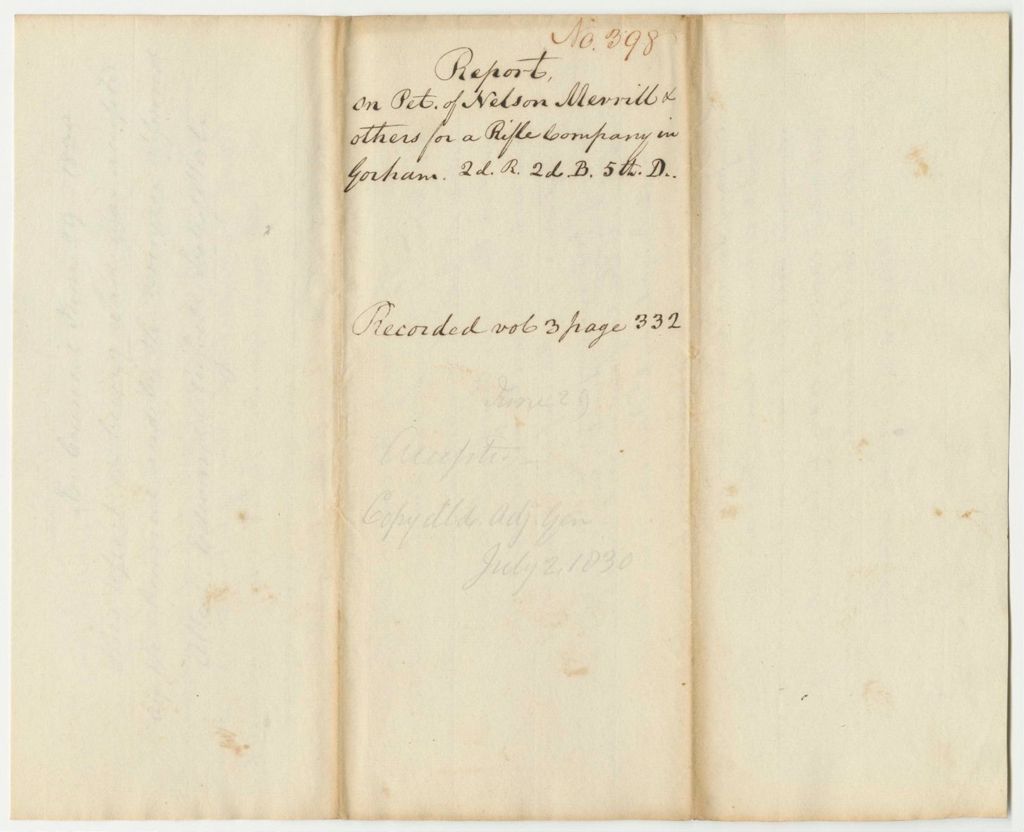 No. 398
Report,
on Pet. of Nelson Merrill &
others for a Rifle Company in
Gorham. 2d. R. 2d. B. 5th. D.
Recorded vol 3 page 332
June 29
Accepted
Copy dld. Adj Gen
July 2, 1830